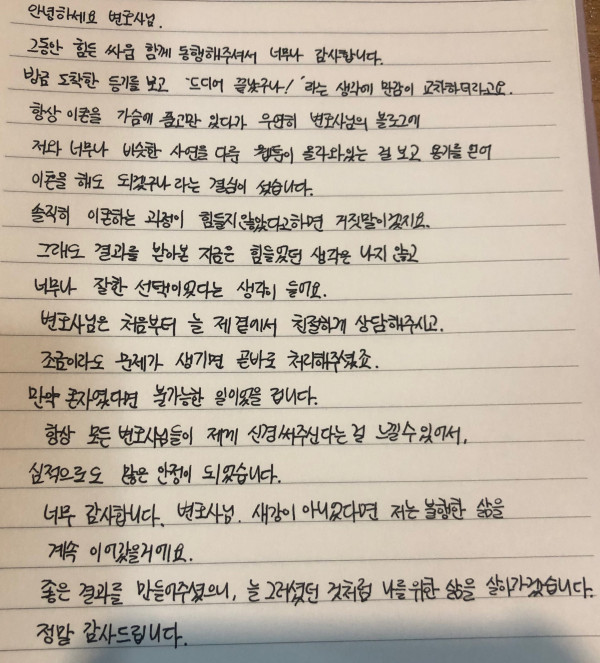 안녕하세요 변호사님.
그동안 힘든 싸움 함께 동행해주셔서 너무나 감사합니다.
방금 도착한 등기를 보고 '드디어 끝났구나!' 라는 생각에 만감이 교차하더라고요.
항상 이혼을 가슴에 품고만 있다가 우연히 변호사님의 블로그에
저와 너무나 비슷한 사연을 다룬 웹툰이 올라와있는 걸 보고 용기를 얻어
이혼을 해도 되겠구나 라는 결심이 섰습니다.
솔직히 이혼하는 과정이 힘들지 않았다고하면 거짓말이겠지요.
그래도 결과를 받아본 지금은 힘들었던 생각은 나지 않고
너무나 잘한 선택이었다는 생각이 들어요.
변호사님은 처음부터 늘 제 곁에서 친절하게 상담해주시고.
조금이라도 문제가 생기면 곧바로 처리해주셨죠.
만약 혼자였다면 불가능한 일이었을 겁니다.
항상 모든 변호사님들이 제게 신경써주신다는 걸 느낄수 있어서,
심적으로도 많은 안정이 되었습니다.
너무 감사합니다. 변호사님. 새강이 아니었다면 저는 불행한 삶을
계속 이어갔을거에요.
좋은 결과를 만들어주셨으니, 늘 그러셨던 것처럼 나를위한 삶을 살아가겠습니다.
정말 감사드립니다.